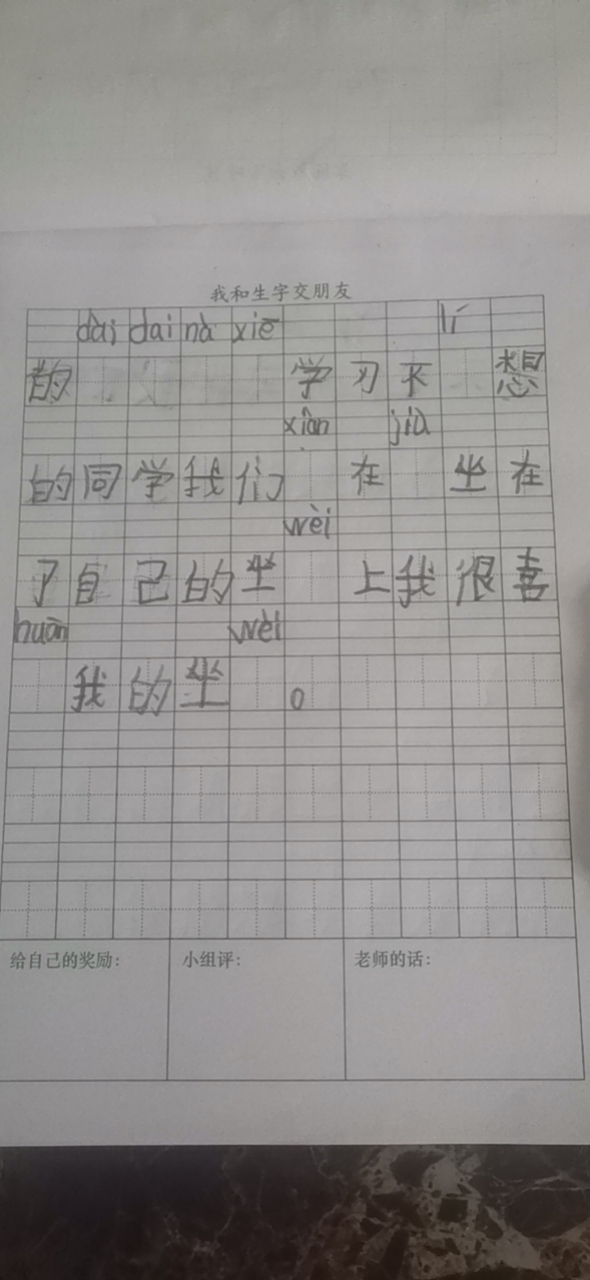 我和生字交朋友
dài dai nà xiē lǐ
的 学习不 想
xiàn jiù
的同学我们 在 坐在
wèi
了自己的坐 上我很喜
huān wèi
我的坐 。
给自己的奖励: 小组评: 老师的话: